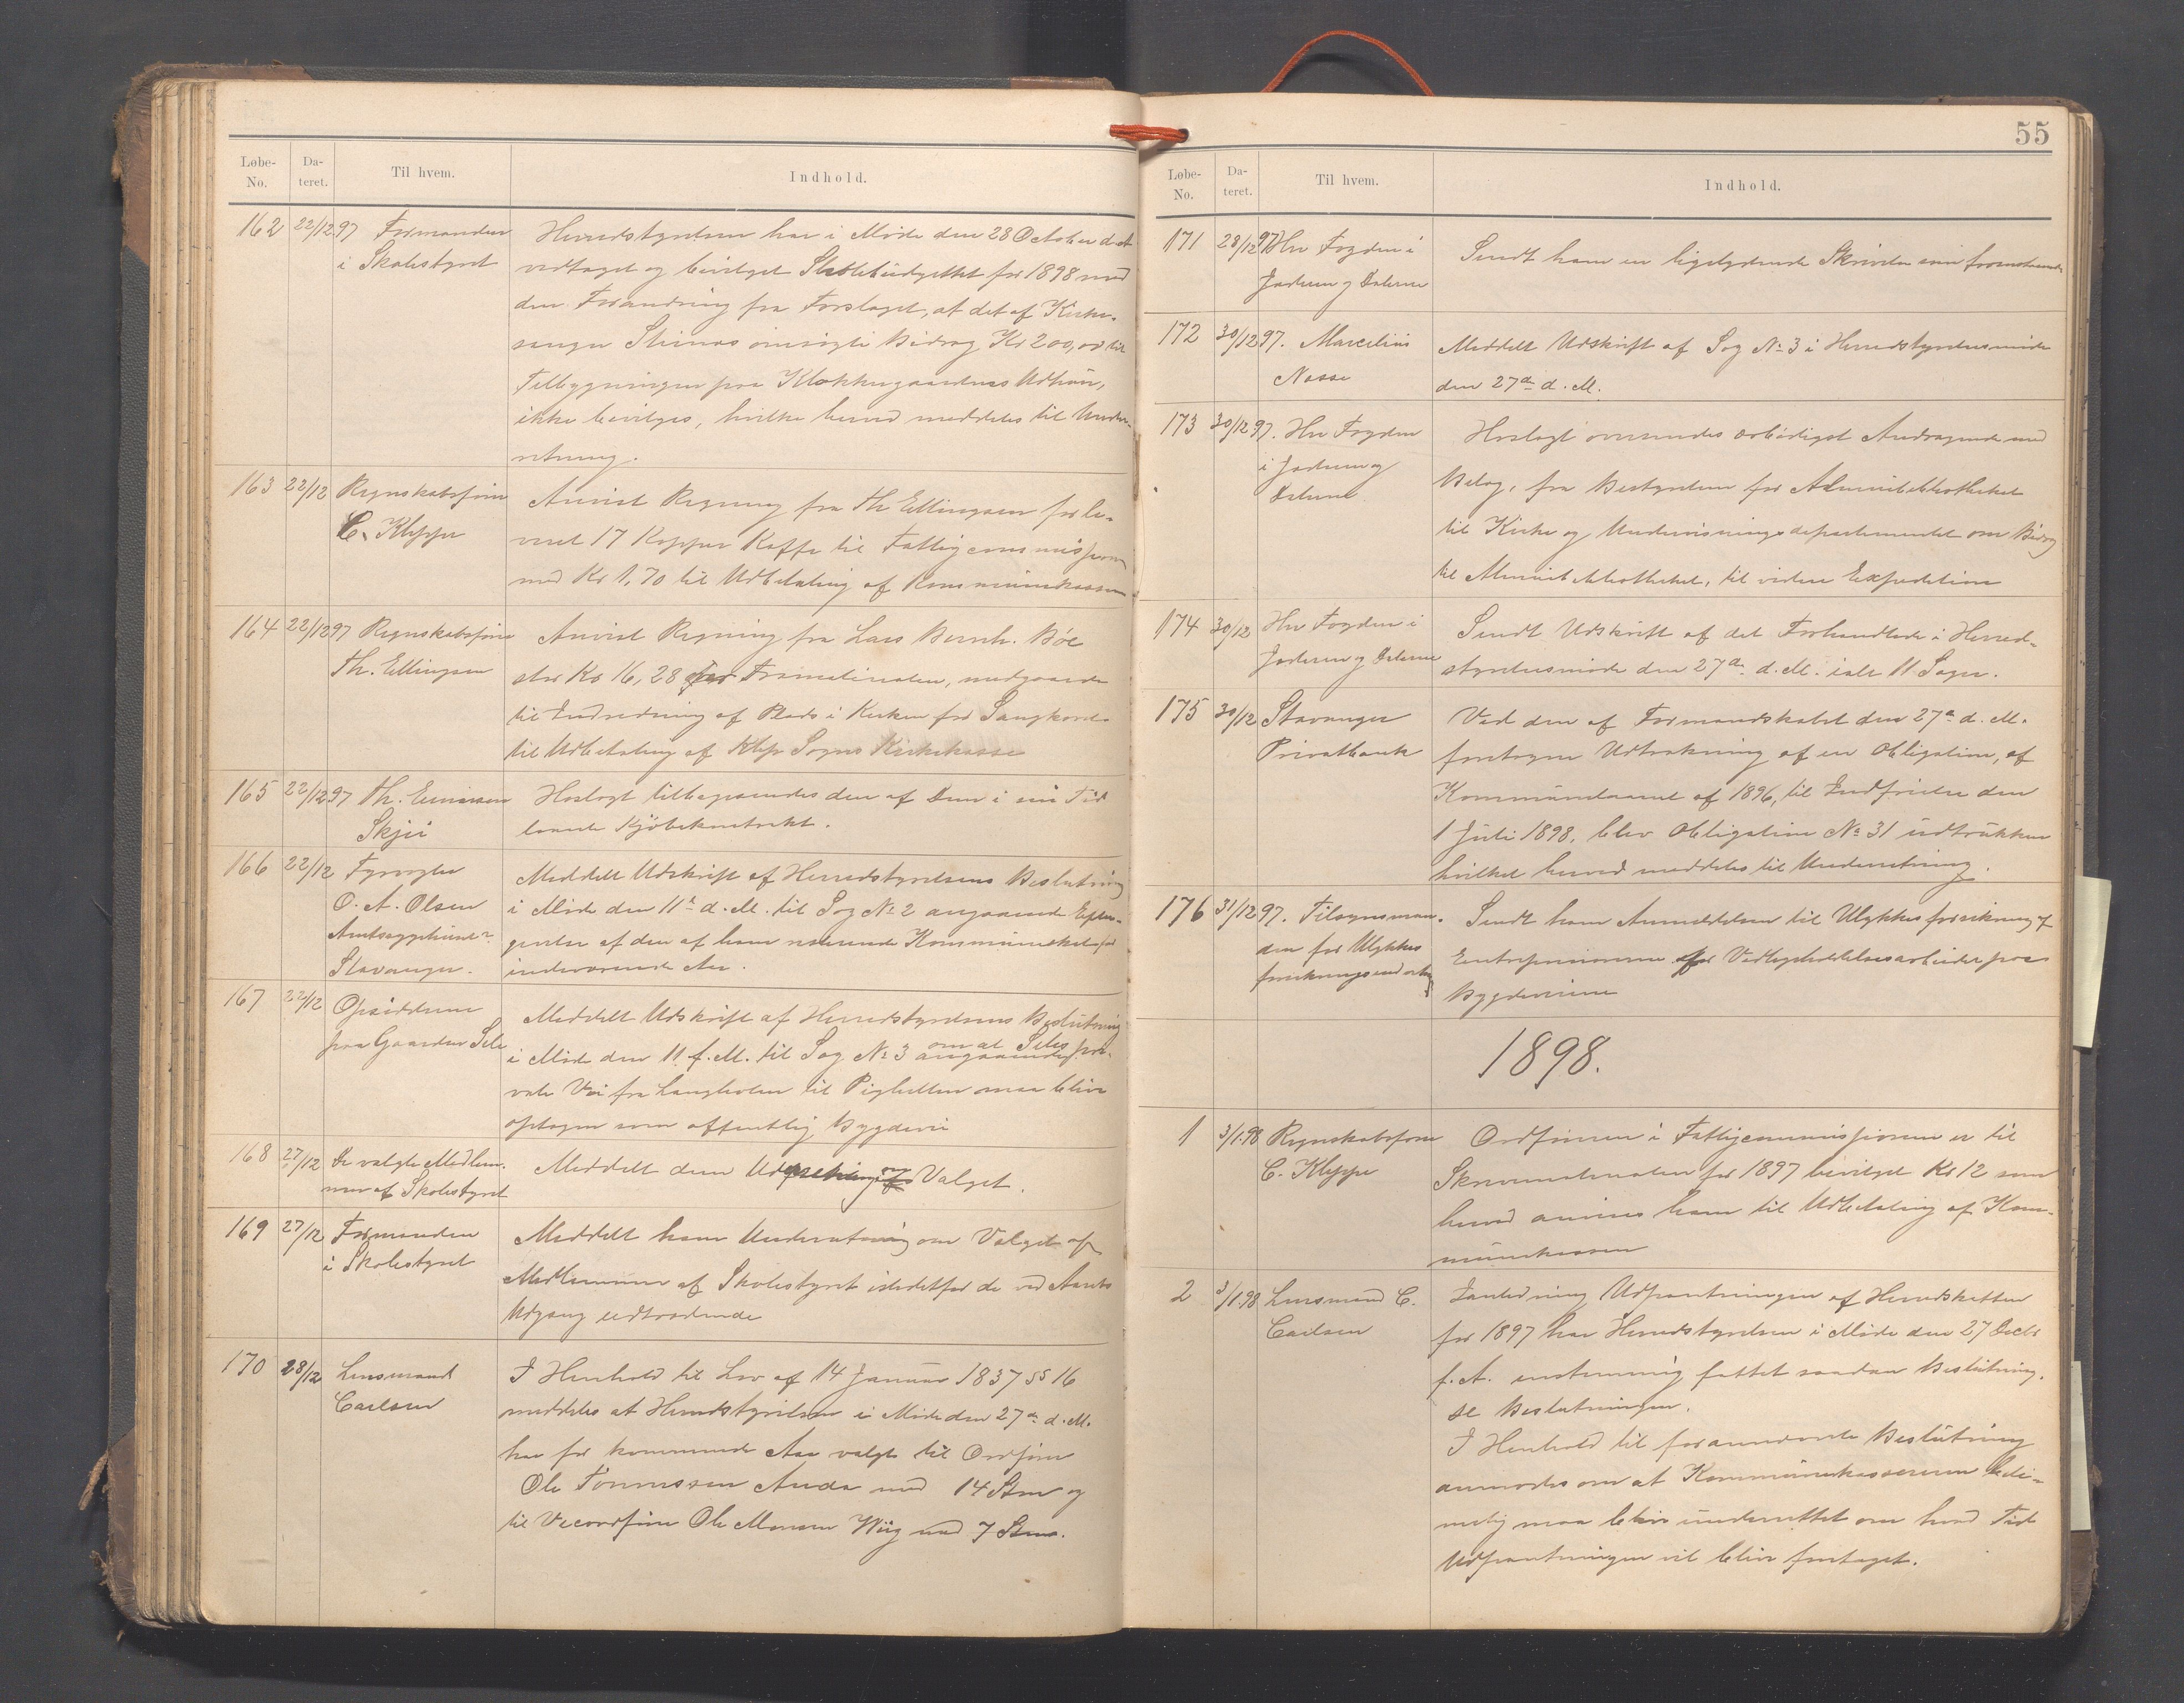 Løbe-No. Da-teret. Til hvem. Indhold.
162 22/12 97 Formanden i Skolestyret
Herredstyrelsen har i Møde den 28 October d. A.
vedtaget og bevilget Skolebudgettet for 1898 med
den Forandring fra Forslaget, at det af Kirke-
sanger omsøgte Bidrag Kr 200,00 til
Tilbygningen paa Klokkergaardens Udhus,
ikke bevilges, hvilke herved meddeles til Under-
retning.
163 22/12 Regnskabsfører C. Kleppe
Anvist Regning fra Th Ellingsen for le-
veret 17 Kopper Kaffe til Fattigcommissionen
med Kr 1,70 til Udbetaling af Kommunekassen
164 22/12 97 Regnskabsfører Th. Ellingsen
Anvist Regning fra Lars Bernh. Bøe
stor Kr 16,28 for Træmaterialer, medgaaede
til Indredning af Plads i Kirken for Sangkoret
til Udbetaling af Klep Sogns Kirkekasse
165 22/12 97 Th. Skjei
Hoslagt tilbagesendes den af Dem i sin Tid
laante Kjøbekontrakt.
166 22/12 Fyrvogter O. A. Olsen Stavanger.
Meddelt Udskrift af Herredstyrelsens Beslutning
i Møde den 11te d. M. til Sag No 2 angaaende Efter-
givelse af den af ham Kommuneskat for
indeværende Aar.
167 22/12 Opsidderne paa Gaarden Sele
Meddelt Udskrift af Herredstyrelsens Beslutning
i Møde den 11 f. M. til Sag No 3 angaaende om at Seles pri-
vate Vei fra Langholen til Pighellen maa blive
optagen som offentlig Bygdevei
168 27/12 De valgte Medlem-
mer af Skolestyret
Meddelt dem om Valget.
169 27/12 Formanden i Skolestyret
Meddelt ham Underretning om Valget af
Medlemmer af Skolestyret istedetfor de ved Aarets
Udgang udtrædende
170 28/12 Lensmand Carlsen
I Henhold til Lov af 14 Januar 1837 §§ 16
meddeles at Herredstyrelsen i Møde den 27de d. M.
har for kommende Aar valgt til Ordfører
Ole Tønnessen Anda med 14 Stm og
til Viceordfører Ole Monsen Wiig med 7 Stm.
55
Løbe-No. Da-teret. Til hvem. Indhold.
171 28/12 97 Hr Fogden i Jæderen og Dalerne
Sendt ham en ligelydende Skrivelse som foranstaaende
172 30/12 97. Marcelius Næsse
Meddelt Udskrift af Sag No 3 i Herredstyrelsesmøde
den 27de d. M.
173 30/12 97. Hr Fogden i Jæderen og Dalerne
Hoslagt oversendes ærbødigst Andragende med
Bilag, fra Bestyrelsen for Almuebibliotheket
til Kirke og Undervisningsdepartementet om Bidrag
til Almuebibliotheket, til videre Expedition
174 30/12 Hr Fogden i Jæderen og Dalerne
Sendt Udskrift af det Forhandlede i Herred-
styrelsesmøde den 27de d. M. ialt 11 Sager.
175 30/12 Stavanger Privatbank
Ved den af Formandskabet den 27de d. M.
foretagne Udtrækning af en Obligation, af
Kommunelaanet af 1896, til Indfrielse den
1 Juli 1898, blev Obligation No 31 udtrukken
hvilket herved meddeles til Underretning.
176 31/12 97. Tilsynsman-
den for Ulykkes
Sendt ham Anmeldelsen til Ulykkesforsikring af
Entreprenørerne for Vedligeholdelsesarbeider paa
Bygdeveiene
1898.
1 3/1.98 Regnskabsfører C. Kleppe
Ordføreren i Fattigcommissionen er til
Skrivematerialer for 1897 bevilget Kr 12 som
herved anvises ham til Udbetaling af Kom-
munekassen
2 3/1.98 Lensmand C. Carlsen
I anledning Udpantningen af Herredskatten
for 1897 har Herredstyrelsen i Møde den 27 Decbr
f. A. enstemmig fattet saadan Beslutning.
se Beslutningen.
I Henhold til foranværende Beslutning
anmodes om at Kommunekassereren betime-
lig maa blive underrettet om hvad Tid
Udpantningen vil blive foretaget.